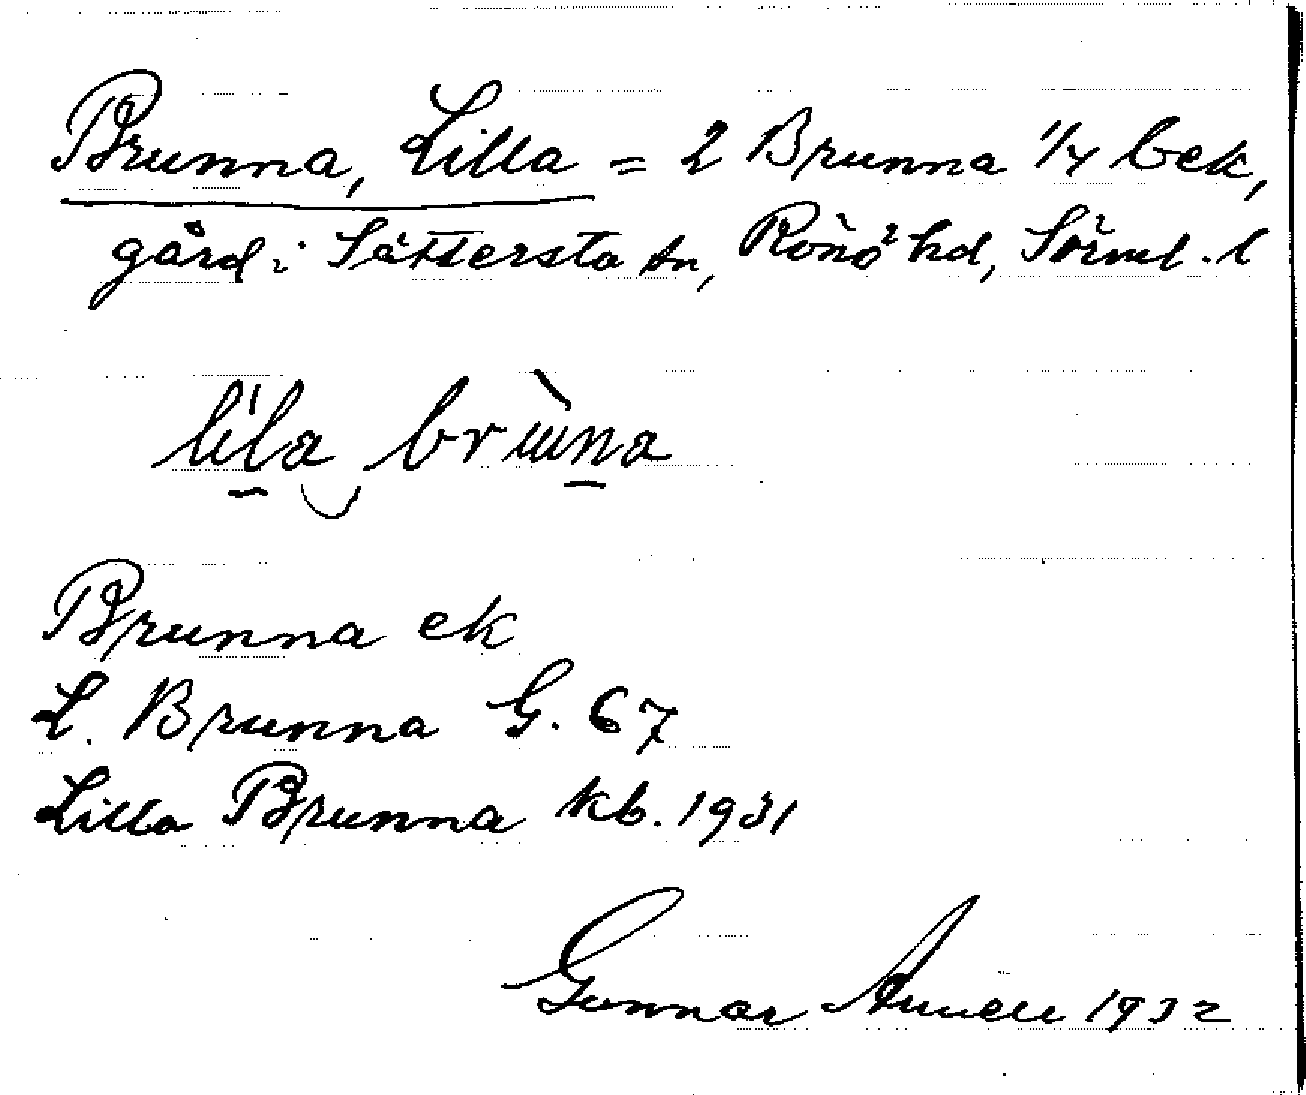 Brunna, Lilla = 2 Brunna 1/4 bek,
gård i Sättersta sn, Rönö hd, Sörml. l
lila bruna
Brunna ek
L. Brunna G. 67
Lilla Brunna kb. 1931
Gunnar Annell 1932